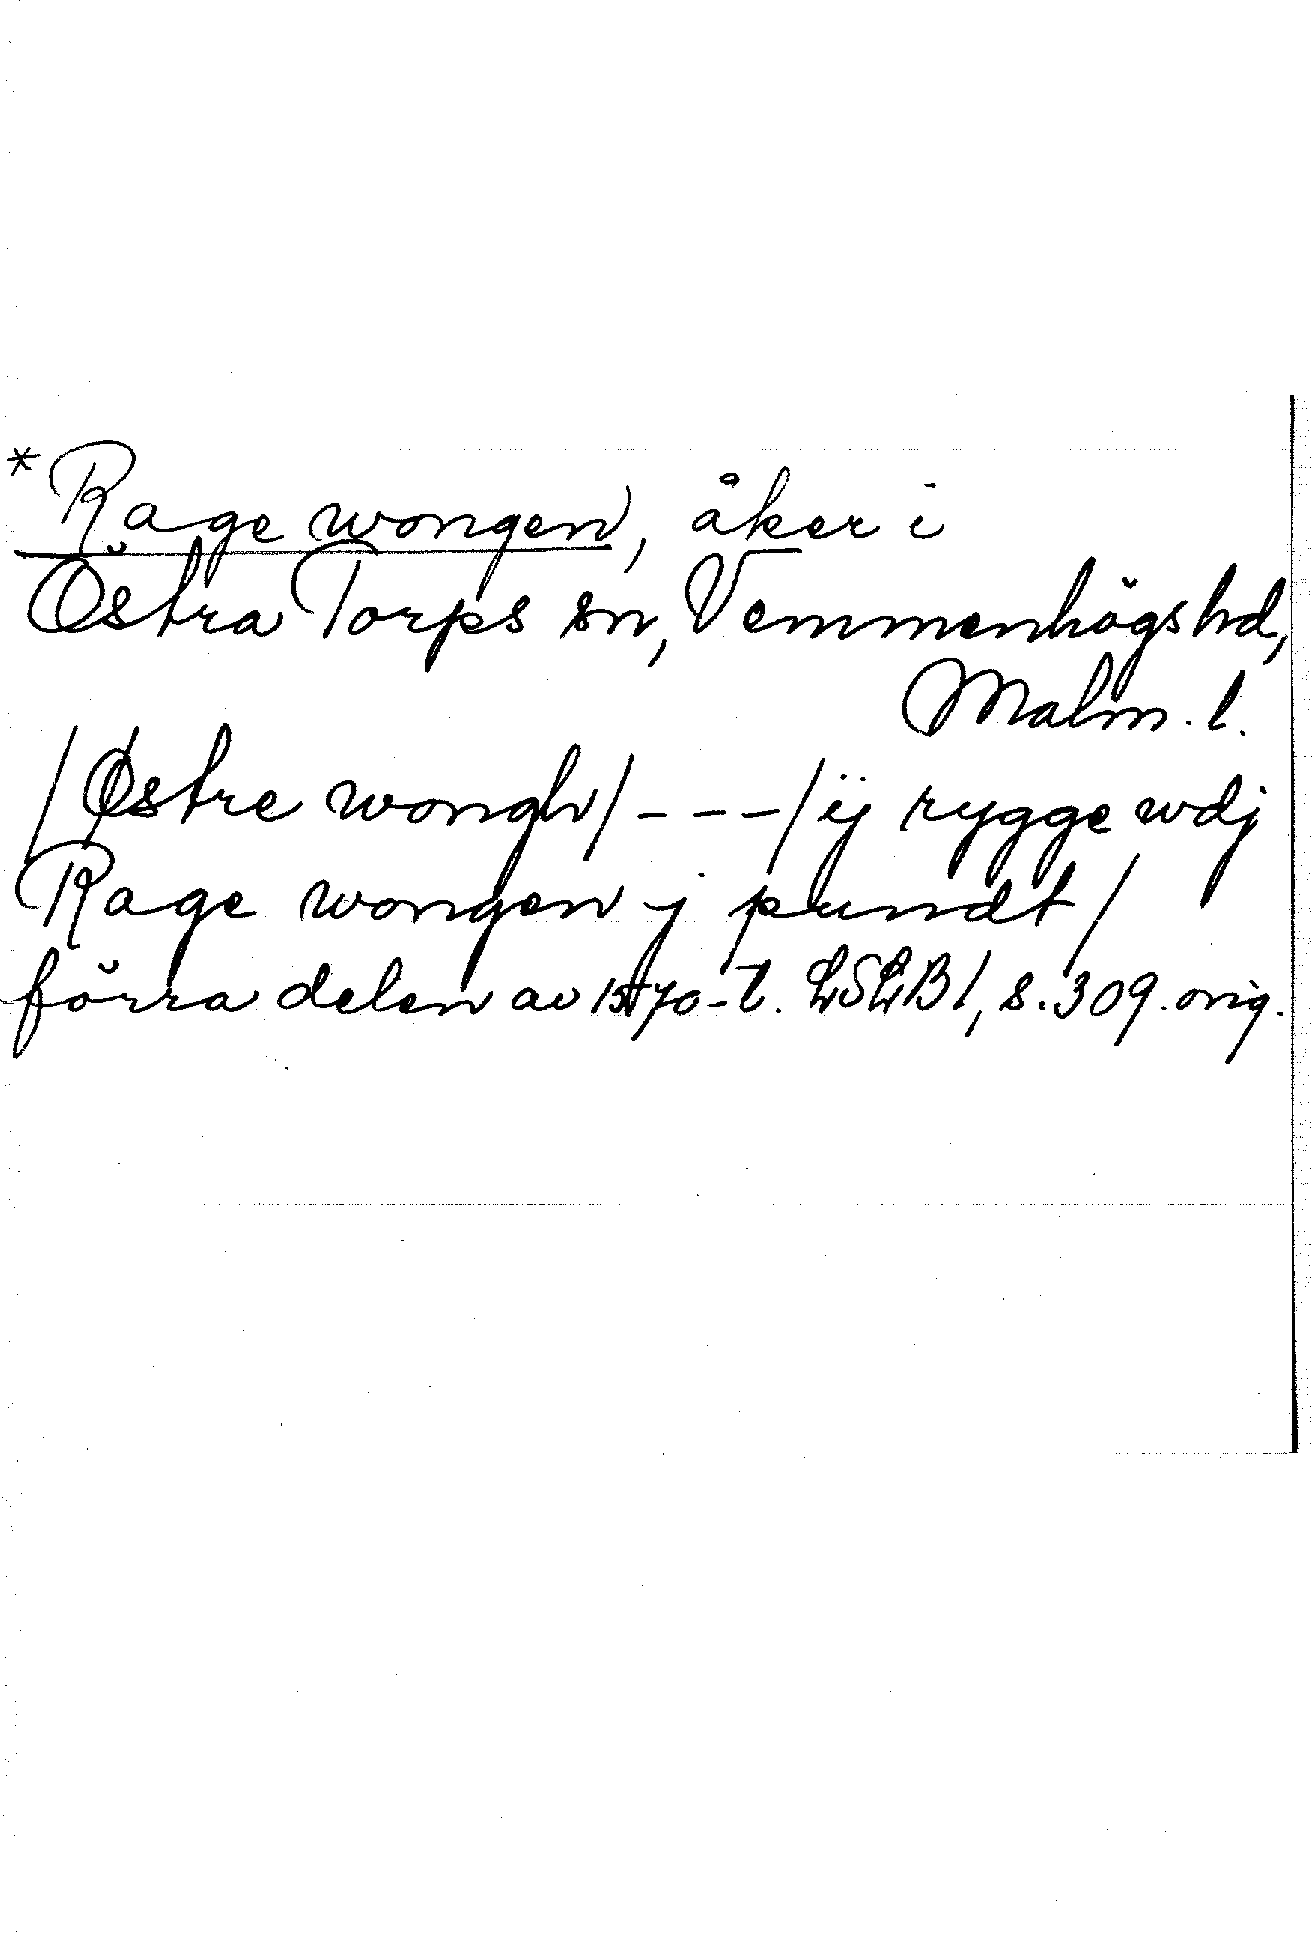 *Rage wongen, åker i
Östra Torps sn, Vemmenhögs hd,
Malm. l.
/Østre wongh/---/ij rygge wdj
Rage wongen j pundt/
förra delen av 1570-t. LSLB 1, s. 309. orig.